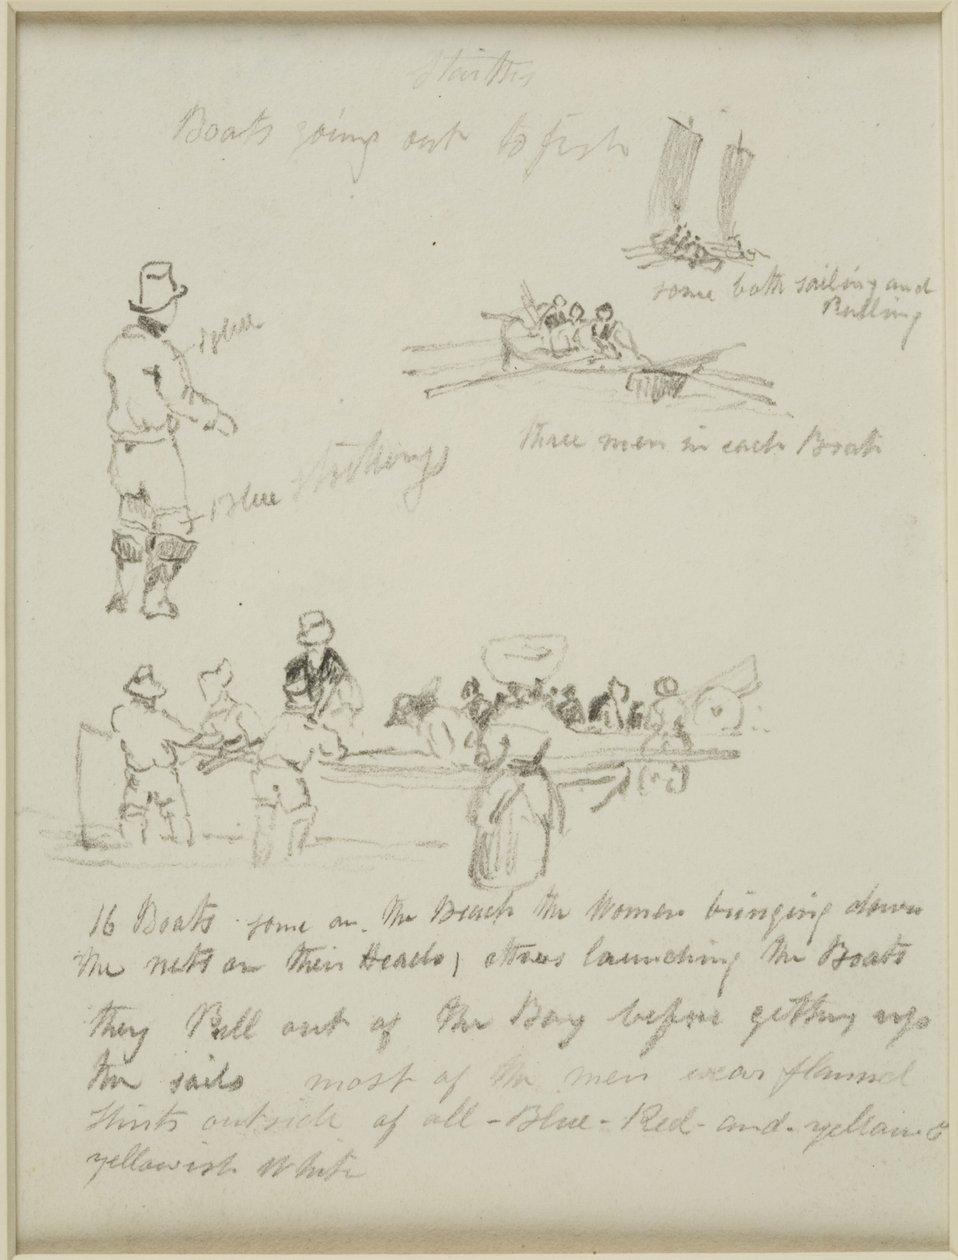 Staithes
Boats going out to fish
some both sailing and
Pulling
Blue
three men in each Boat
Blue stockings
16 Boats some on the Beach the Women bringing down
the nets on their Heads, others launching the Boats
they Pull out of the Bay before getting up
the sails most of the men wear flannel
Shirts outside of all - Blue - Red - and - yellow &
yellowish White